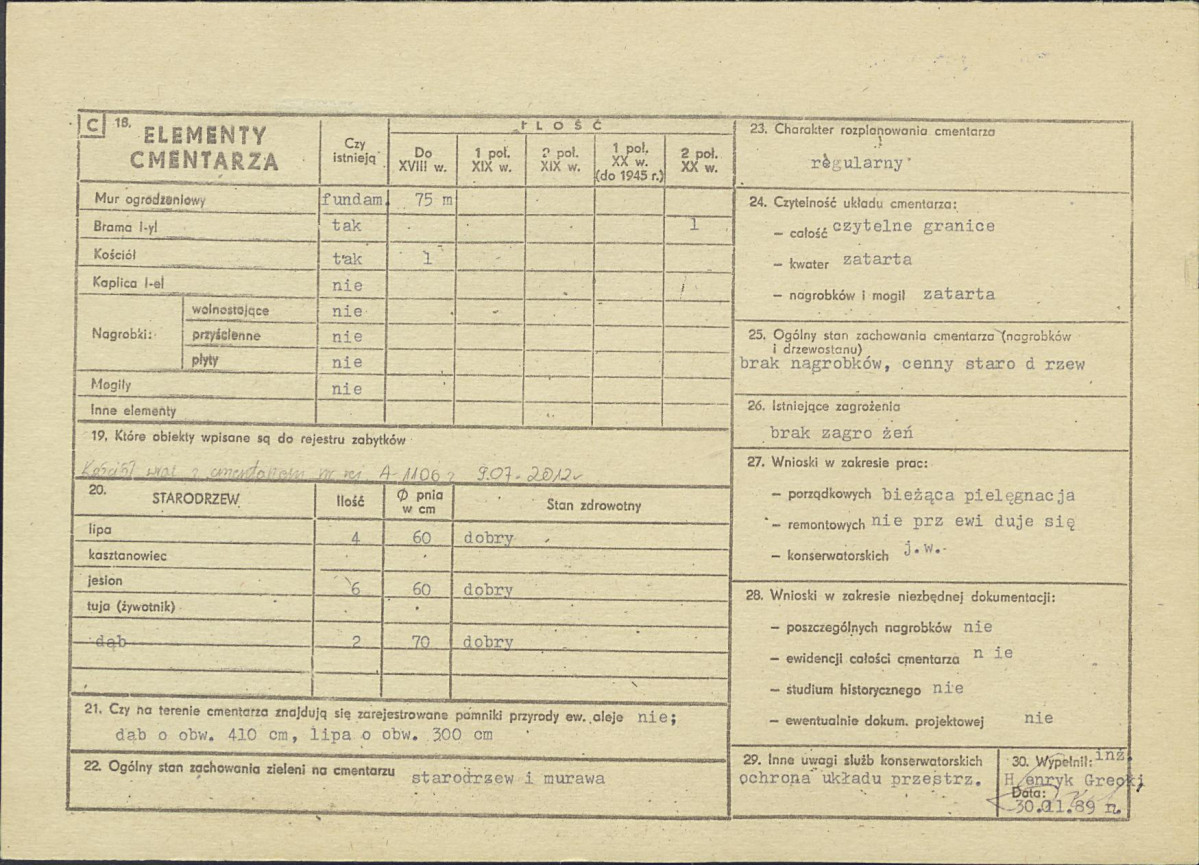 C 18. ELEMENTY CMENTARZA
Czy istnieją
ILOŚĆ
Do XVIII w.
1 poł. XIX w.
2 poł. XIX w.
1 poł. XX w. (do 1945 r.)
2 poł. XX w.
Mur ogrodzeniowy fundam. 75 m
Brama I-yl tak 1
Kościół tak 1
Kaplica I-el nie
Nagrobki:
wolnostojące nie
przyścienne nie
płyty nie
Mogiły nie
Inne elementy
19. Które obiekty wpisane są do rejestru zabytków
Kościół wraz z cmentarzem nr rej A-1106 z 9.07.2012r
20. STARODRZEW Ilość Ø pnia w cm Stan zdrowotny
lipa 4 60 dobry
kasztanowiec
jesion 6 60 dobry
tuja (żywotnik)
dąb 2 70 dobry
21. Czy na terenie cmentarza znajdują się zarejestrowane pomniki przyrody ew. aleje nie;
dąb o obw. 410 cm, lipa o obw. 300 cm
22. Ogólny stan zachowania zieleni na cmentarzu starodrzew i murawa
23. Charakter rozplanowania cmentarza
regularny
24. Czytelność układu cmentarza:
– całość czytelne granice
– kwater zatarta
– nagrobków i mogił zatarta
25. Ogólny stan zachowania cmentarza (nagrobków
i drzewostanu)
brak nagrobków, cenny staro d rzew
26. Istniejące zagrożenia
brak zagro żeń
27. Wnioski w zakresie prac:
– porządkowych bieżąca pielęgnacja
– remontowych nie prz ewi duje się
– konserwatorskich j.w.
28. Wnioski w zakresie niezbędnej dokumentacji:
– poszczególnych nagrobków nie
– ewidencji całości cmentarza n ie
– studium historycznego nie
– ewentualnie dokum. projektowej nie
29. Inne uwagi służb konserwatorskich
ochrona układu przestrz.
30. Wypełnił: inż.
Henryk Grecki
Data:
30.11.89 r.